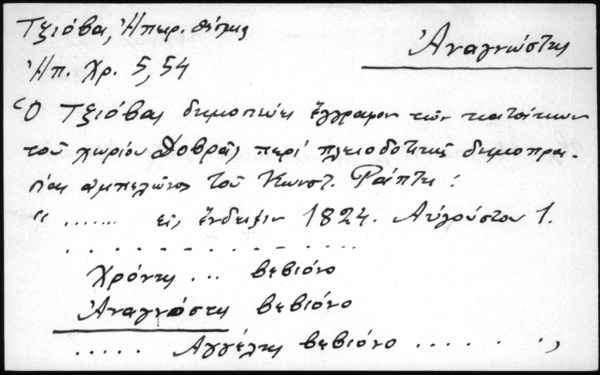 Τζιόβα, Ἠπειρ. θέμις
Ἀναγνώστης
Ἠπ. Χρ. 5, 54
Ὁ Τζιόβας δημοσιεύει ἔγγραφον τῶν κατοίκων
τοῦ χωρίου Δοβρᾶς περί πλειοδοτικῆς δημοπρα-
σίας ἀμπελῶνος τοῦ Κωνστ. Ράπτη :
" ...... εἰς ἔνδειξιν 1824. Αὐγούστου 1.
. . . . . . . . . . . . . .
Χρόντης ... βεβιόνο
Ἀναγνώστης βεβιόνο
..... Αγγέλης βεβιόνο ...... "